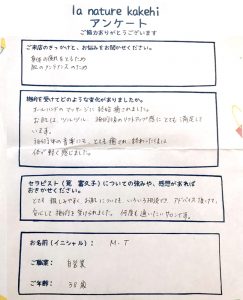 la nature kakehi
アンケート
ご協力ありがとうございます
ご来店のきっかけと、お悩みをお聞かせください。
身体の疲れをとるため
肌のメンテナンスのため
施術を受けてどのような変化がありましたか。
オールハンドのマッサージに結構癒されました。
お肌は、ツルツル、施術後のリフトアップ感にとても満足して
います。
施術後の音楽にも、とても癒され、終わったあとは
体が軽く感じました。
セラピスト（筧 富久子）についての強みや、感想があれば
おきかせください。
とても親しみやすく、お肌についても、いろいろ相談でき、アドバイス頂けて、
安心して施術を受けられました。何度も通いたいサロンです。
お名前（イニシャル）： M・T
ご職業： 自営業
ご年齢： 38歳